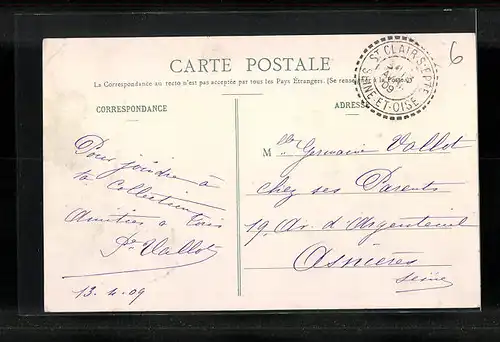 CARTE POSTALE
La Correspondance au recto n'est pas acceptée par tous les Pays Étrangers. (Se renseigner à la Poste)
6
ST CLAIR-S-EPTE
09
SEINE-ET-OISE
CORRESPONDANCE
ADRESSE
Pour joindre à
ta collection
Amitiés à tous
Vallot
13.4.09
Mlle Germaine Vallot
chez ses Parents
19. Av. d'Argenteuil
Asnières
Seine